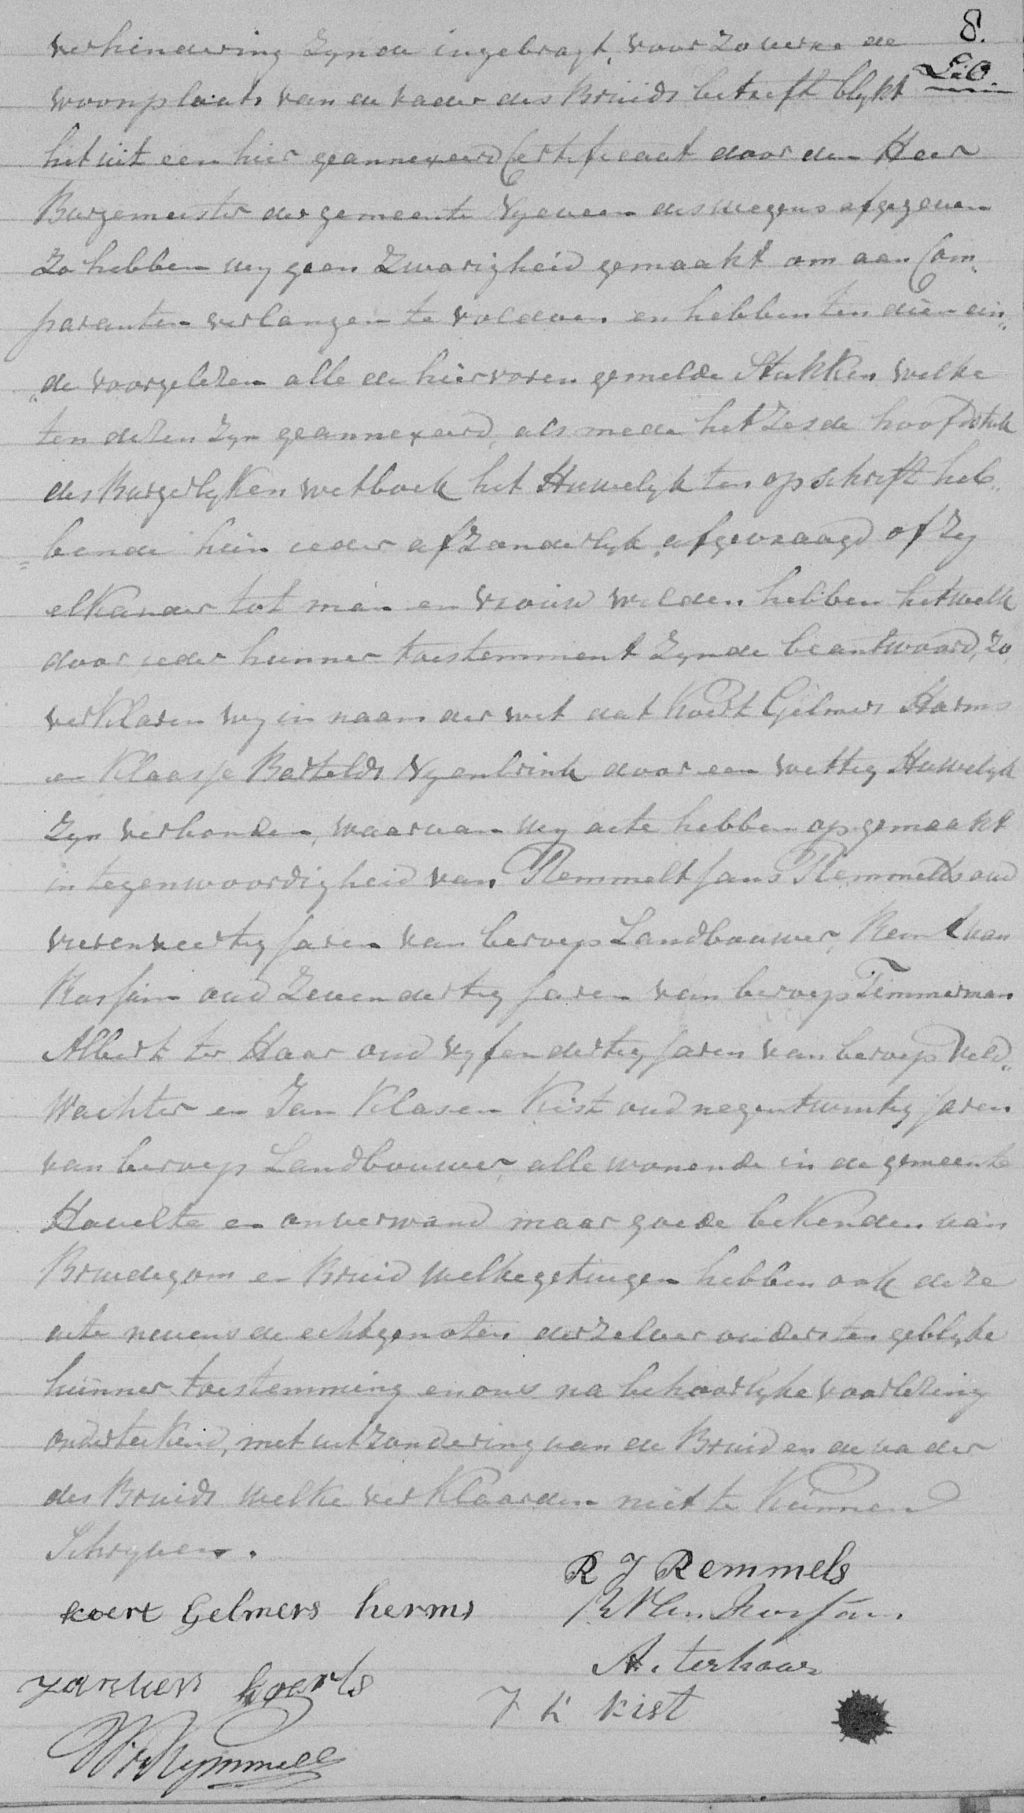 8.
LiO.
verhindering zynde ingebragt, voor zo verre de
woonplaats van de vader des Bruids betreft blykt
het uit een hier geannexeerd Certificaat door den Heer
Burgemeester der gemeente Nyeveen deswegens afgegeven
Zo hebben wy geen Zwarigheid gemaakt om aan Com„
paranten verlangen te voldoen en hebben ten dien ein„
„de voorgelezen alle de hiervoren gemelde Stukken welke
ten dezen zyn geannexeerd, als mede het Zesde hoofdstuk
des Burgerlyken wetboek het Huwelyk ten opschrift heb„
„bende hen ieder afzonderlyk afgevraagd of Zy
elkander tot man en vrouw wilden hebben hetwelk
door ieder hunner toestemment Zynde beantwoord, Zo
verklaren wy in naam der wet dat Koert Gelmers Harms
en Klaasje Bartelds Nyenbrink door een wettig Huwelyk
Zyn verbonden, waarvan wy acte hebben opgemaakt
in tegenwoordigheid van Remmelt Jans Remmelts oud
vierenveertig Jaren van beroep Landbouwer, Reint van
oud Zevendertig Jaren van beroep Timmerman
Albert ter Haar oud vyfendertig Jaren van beroep Veld„
Wachter en Jan Klasen Kist oud negentwintig Jaren
van beroep Landbouwer, alle wonende in de gemeente
Havelte en onverwand maar goede bekenden van
Bruidegom en Bruid welke getuigen hebben ook deze
acte nevens de echtgenoten derzelver ouders ten geblyke
hunner toestemming en ons na behoorlyke voorlezing
ondertekend, met uitzondering van de Bruid en de vader
des Bruids welke verklaarden niet te kunnen
Schryven.
R J Remmels
koert gelmers herms
A. terhaar
koerts
J K kist